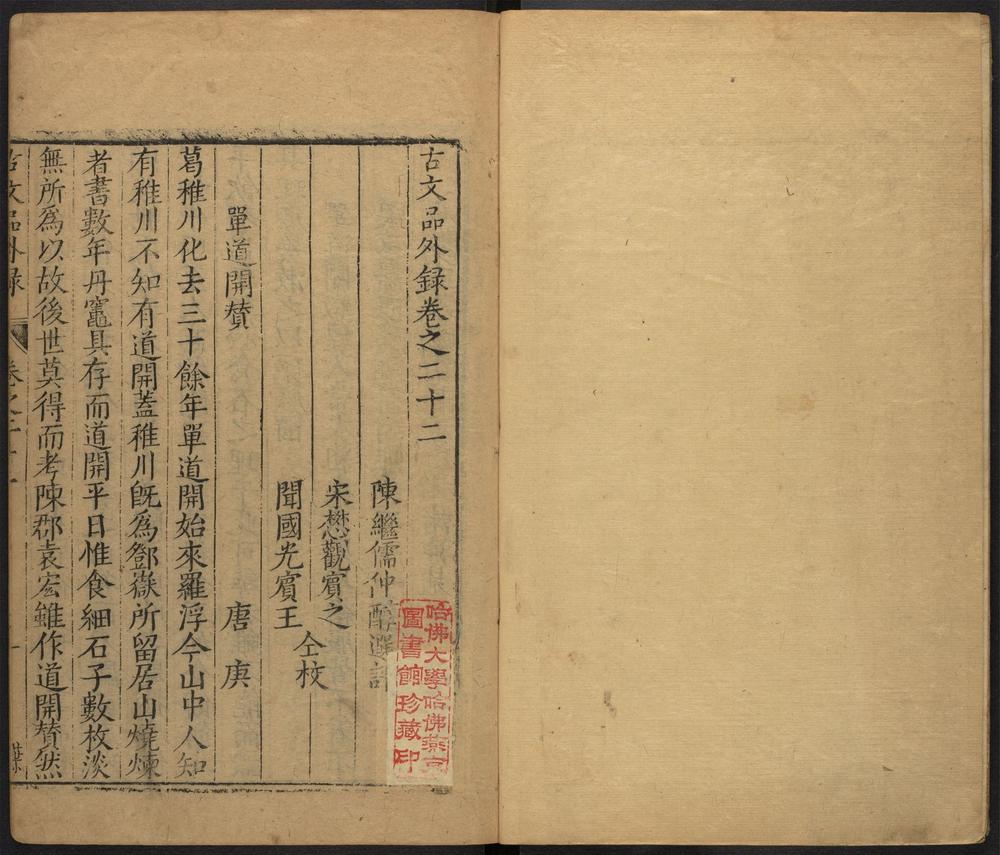 古文品外録卷之二十二
陳繼儒仲醇選評
宋懋觀賓之
聞國光賓王
仝校
單道開賛
唐庚
葛稚川化去三十餘年單道開始來羅浮今山中人知
有稚川不知有道開蓋稚川旣為鄧嶽所留居山燒煉
者書數年丹竈具存而道開平日惟食細石子數枚淡
無所爲以故後世莫得而考陳郡袁宏雖作道開賛然
古文品外録
卷之二十二
一
哈佛大學哈佛燕京
圖書館珍藏印